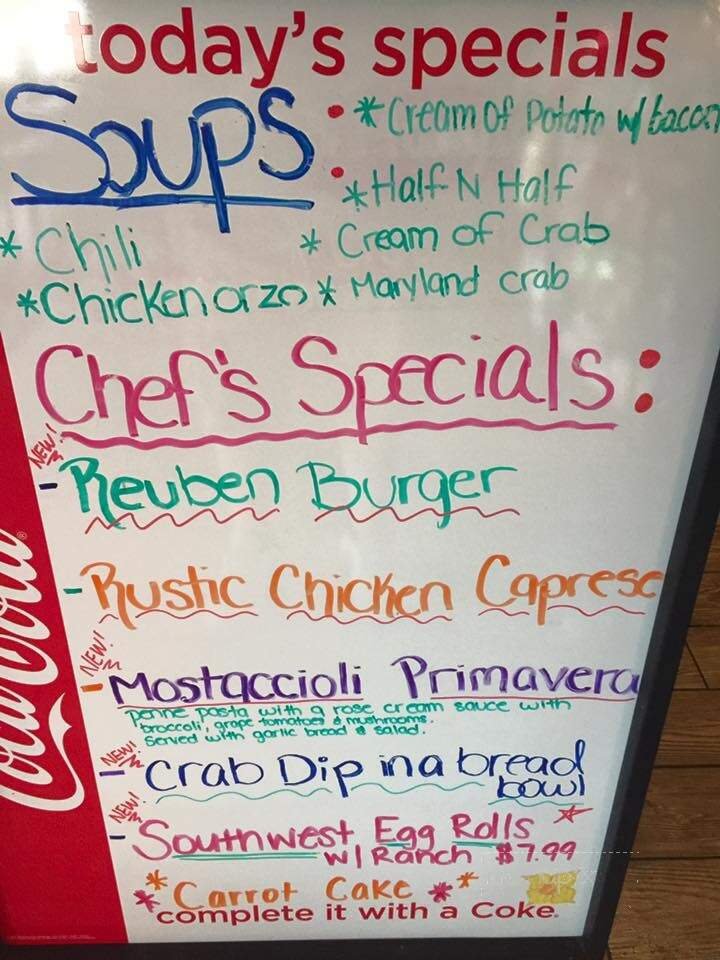 today's specials
Soups
* Cream of Potato w/ bacon
* Half N Half
* Chili
* Cream of Crab
* Chicken orzo
* Maryland crab
Chef's Specials:
NEW!
- Reuben Burger
- Rustic Chicken Caprese
NEW!
- Mostaccioli Primavera
penne pasta with a rose cream sauce with
broccoli, grape tomatoes & mushrooms.
Served with garlic bread & salad.
NEW!
- Crab Dip in a bread
bowl
NEW!
- Southwest Egg Rolls
w/ Ranch $7.99
* Carrot Cake *
complete it with a Coke.
Coca-Cola